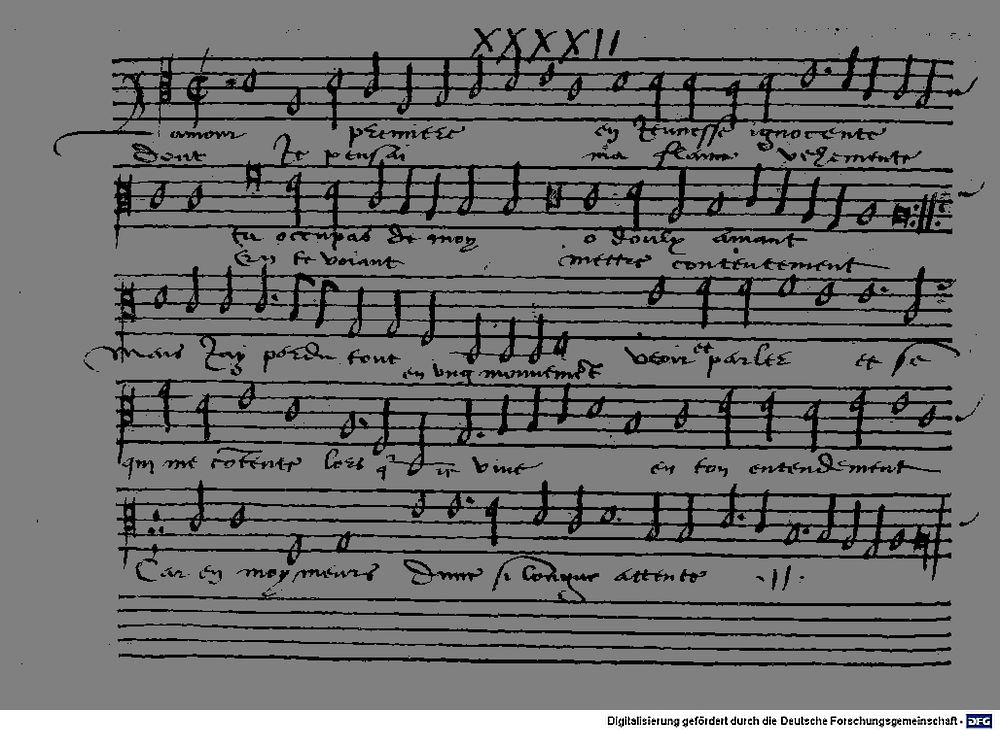 XXXXII
amour premiere en Jeunesse ignocente
Dont Je pensai ma flame vehemente
tu occupas de moy o doulx amant
En te voiant mettre contentement
Mais Jay perdu tout en ung mouvemẽt veoir et parler et se
qui me cõtente lors q̃ ie vint en ton entendement
Car en moy meurs Dune si longue attente
Digitalisierung gefördert durch die Deutsche Forschungsgemeinschaft - DFG